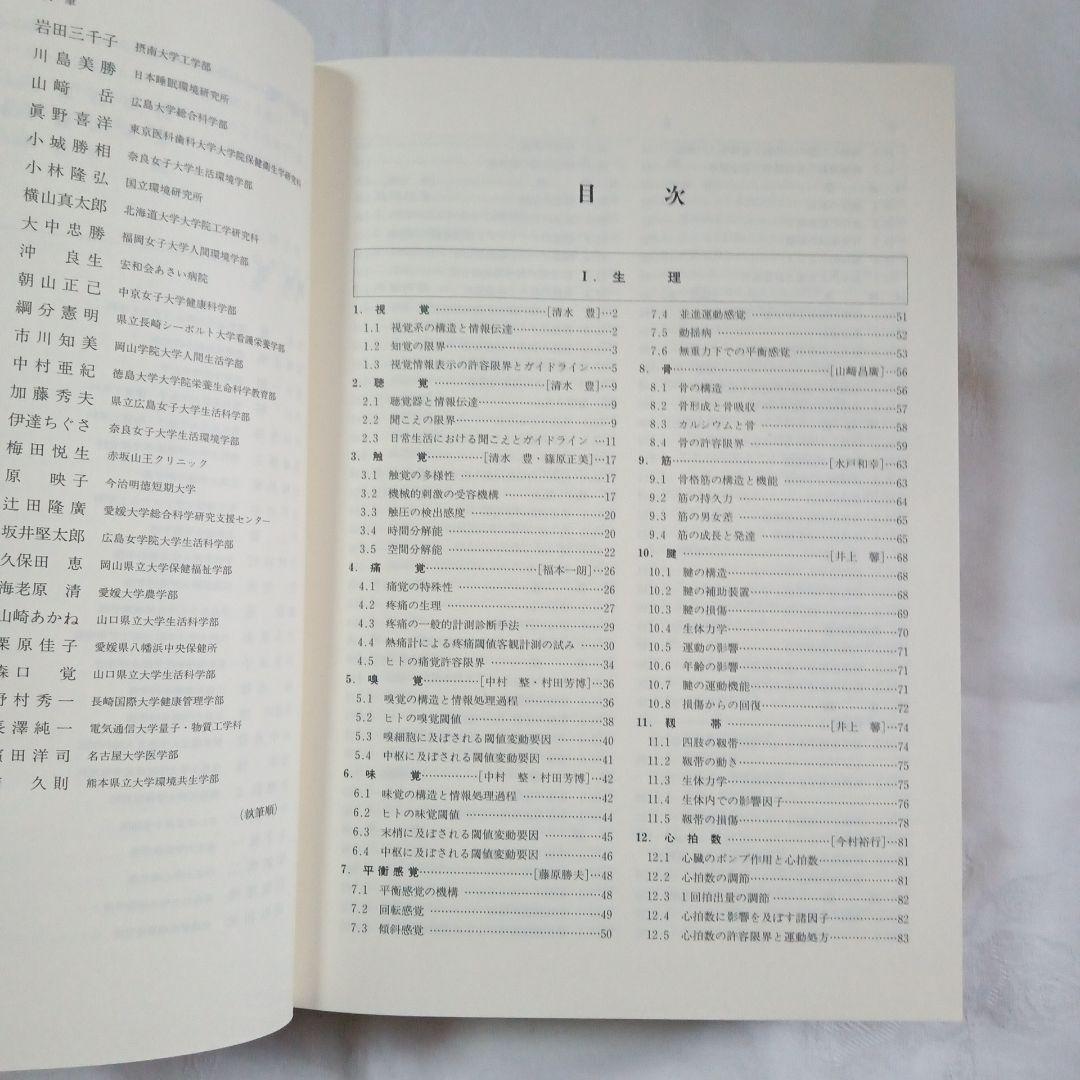 筆
岩田三千子 摂南大学工学部
川島美勝 日本睡眠環境研究所
山﨑 岳 広島大学総合科学部
眞野喜洋 東京医科歯科大学大学院保健衛生学研究科
小城勝相 奈良女子大学生活環境学部
小林隆弘 国立環境研究所
横山真太郎 北海道大学大学院工学研究科
大中忠勝 福岡女子大学人間環境学部
沖 良生 宏和会あさい病院
朝山正己 中京女子大学健康科学部
綱分憲明 県立長崎シーボルト大学看護栄養学部
市川知美 岡山学院大学人間生活学部
中村亜紀 徳島大学大学院栄養生命科学教育部
加藤秀夫 県立広島女子大学生活科学部
伊達ちぐさ 奈良女子大学生活環境学部
梅田悦生 赤坂山王クリニック
原 映子 今治明徳短期大学
辻田隆廣 愛媛大学総合科学研究支援センター
坂井堅太郎 広島女学院大学生活科学部
久保田 恵 岡山県立大学保健福祉学部
海老原 清 愛媛大学農学部
山崎あかね 山口県立大学生活科学部
栗原佳子 愛媛県八幡浜中央保健所
森口 覚 山口県立大学生活科学部
野村秀一 長崎国際大学健康管理学部
長澤純一 電気通信大学量子・物質工学科
濱田洋司 名古屋大学医学部
久則 熊本県立大学環境共生学部
(執筆順)
目 次
I. 生 理
1. 視 覚 ……[清水 豊]…2
1.1 視覚系の構造と情報伝達……2
1.2 知覚の限界……3
1.3 視覚情報表示の許容限界とガイドライン……5
2. 聴 覚 ……[清水 豊]…9
2.1 聴覚器と情報伝達……9
2.2 聞こえの限界……9
2.3 日常生活における聞こえとガイドライン …11
3. 触 覚 ……[清水 豊・篠原正美]…17
3.1 触覚の多様性……17
3.2 機械的刺激の受容機構……17
3.3 触圧の検出感度……20
3.4 時間分解能……20
3.5 空間分解能……22
4. 痛 覚 ……[福本一朗]…26
4.1 痛覚の特殊性……26
4.2 疼痛の生理……27
4.3 疼痛の一般的計測診断手法……29
4.4 熱痛計による疼痛閾値客観計測の試み……30
4.5 ヒトの痛覚許容限界……34
5. 嗅 覚 ……[中村 整・村田芳博]…36
5.1 嗅覚の構造と情報処理過程……36
5.2 ヒトの嗅覚閾値……38
5.3 嗅細胞に及ぼされる閾値変動要因……40
5.4 中枢に及ぼされる閾値変動要因……41
6. 味 覚……[中村 整・村田芳博]…42
6.1 味覚の構造と情報処理過程……42
6.2 ヒトの味覚閾値……44
6.3 末梢に及ぼされる閾値変動要因……45
6.4 中枢に及ぼされる閾値変動要因……46
7. 平衡感覚……[藤原勝夫]…48
7.1 平衡感覚の機構……48
7.2 回転感覚……49
7.3 傾斜感覚……50
7.4 並進運動感覚……51
7.5 動揺病……52
7.6 無重力下での平衡感覚……53
8. 骨……[山﨑昌廣]…56
8.1 骨の構造……56
8.2 骨形成と骨吸収……57
8.3 カルシウムと骨……58
8.4 骨の許容限界……59
9. 筋……[水戸和幸]…63
9.1 骨格筋の構造と機能……63
9.2 筋の持久力……64
9.3 筋の男女差……65
9.4 筋の成長と発達……65
10. 腱……[井上 馨]…68
10.1 腱の構造……68
10.2 腱の補助装置……68
10.3 腱の損傷……69
10.4 生体力学……70
10.5 運動の影響……71
10.6 年齢の影響……71
10.7 腱の運動機能……71
10.8 損傷からの回復……72
11. 靱 帯……[井上 馨]…74
11.1 四肢の靱帯……74
11.2 靱帯の働き……75
11.3 生体力学……75
11.4 生体内での影響因子……76
11.5 靱帯の損傷……78
12. 心拍数……[今村裕行]…81
12.1 心臓のポンプ作用と心拍数……81
12.2 心拍数の調節……81
12.3 1回拍出量の調節……82
12.4 心拍数に影響を及ぼす諸因子……82
12.5 心拍数の許容限界と運動処方……83